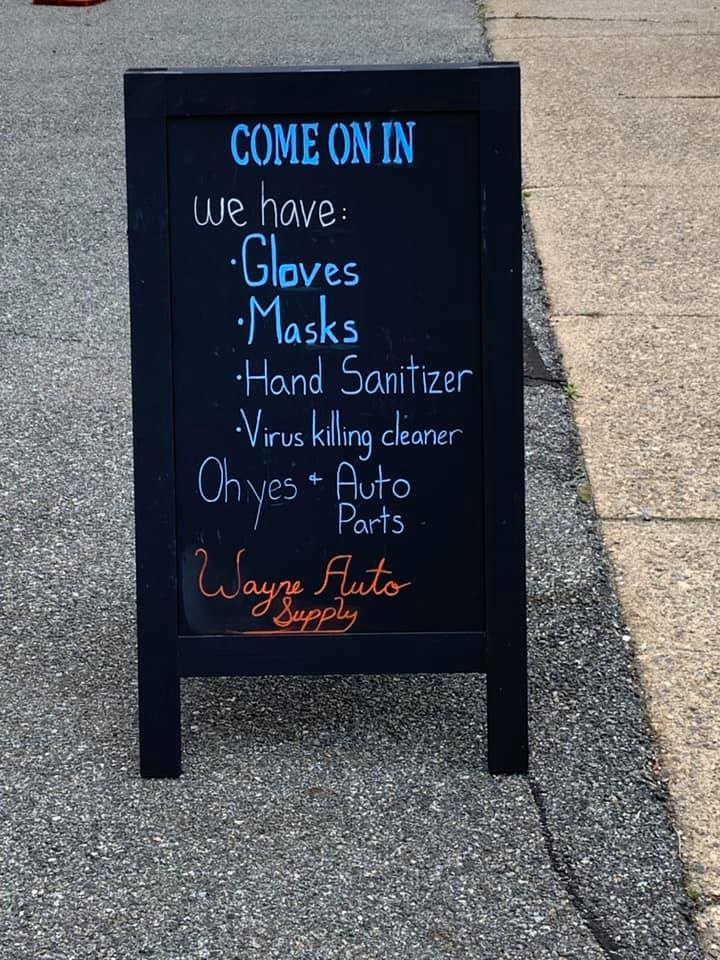 COME ON IN
we have:
·Gloves
·Masks
·Hand Sanitizer
·Virus killing cleaner
Oh yes + Auto
Parts
Wayne Auto
Supply